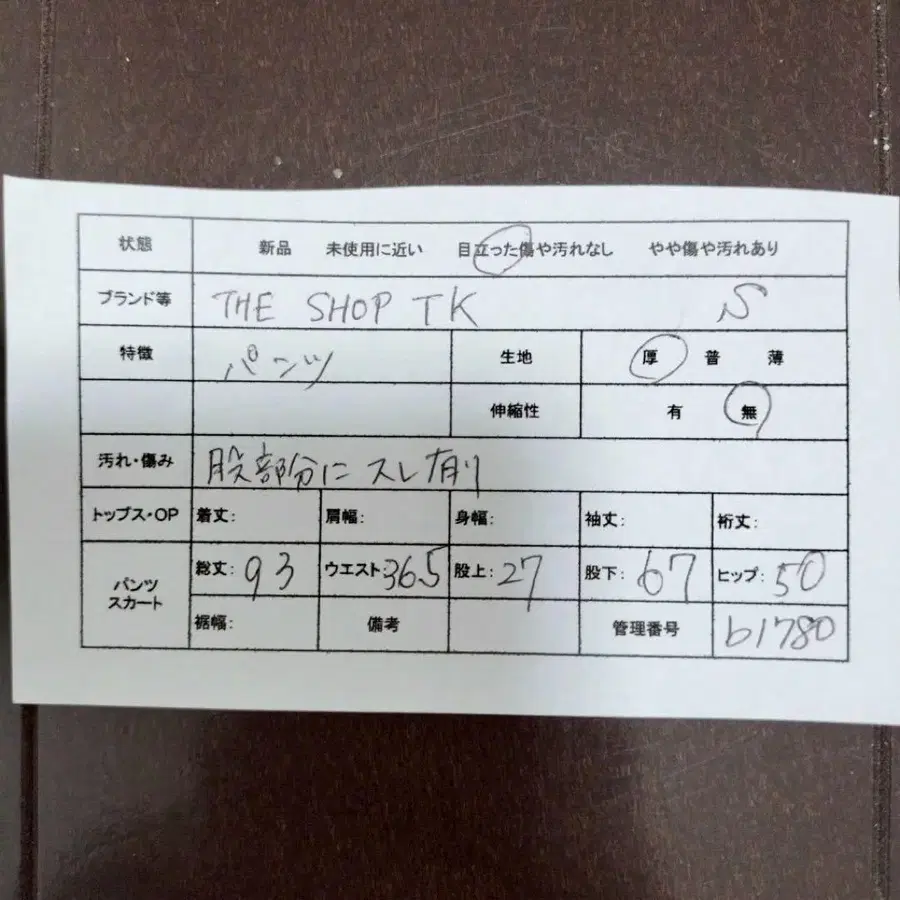 状態 新品 未使用に近い 目立った傷や汚れなし やや傷や汚れあり
ブランド等 THE SHOP TK S
特徴 パンツ 生地 厚 普 薄
伸縮性 有 無
汚れ・傷み 股部分にスレ有り
トップス・OP 着丈: 肩幅: 身幅: 袖丈: 裄丈:
パンツ スカート 総丈: 93 ウエスト: 36.5 股上: 27 股下: 67 ヒップ: 50
裾幅: 備考 管理番号 b1780